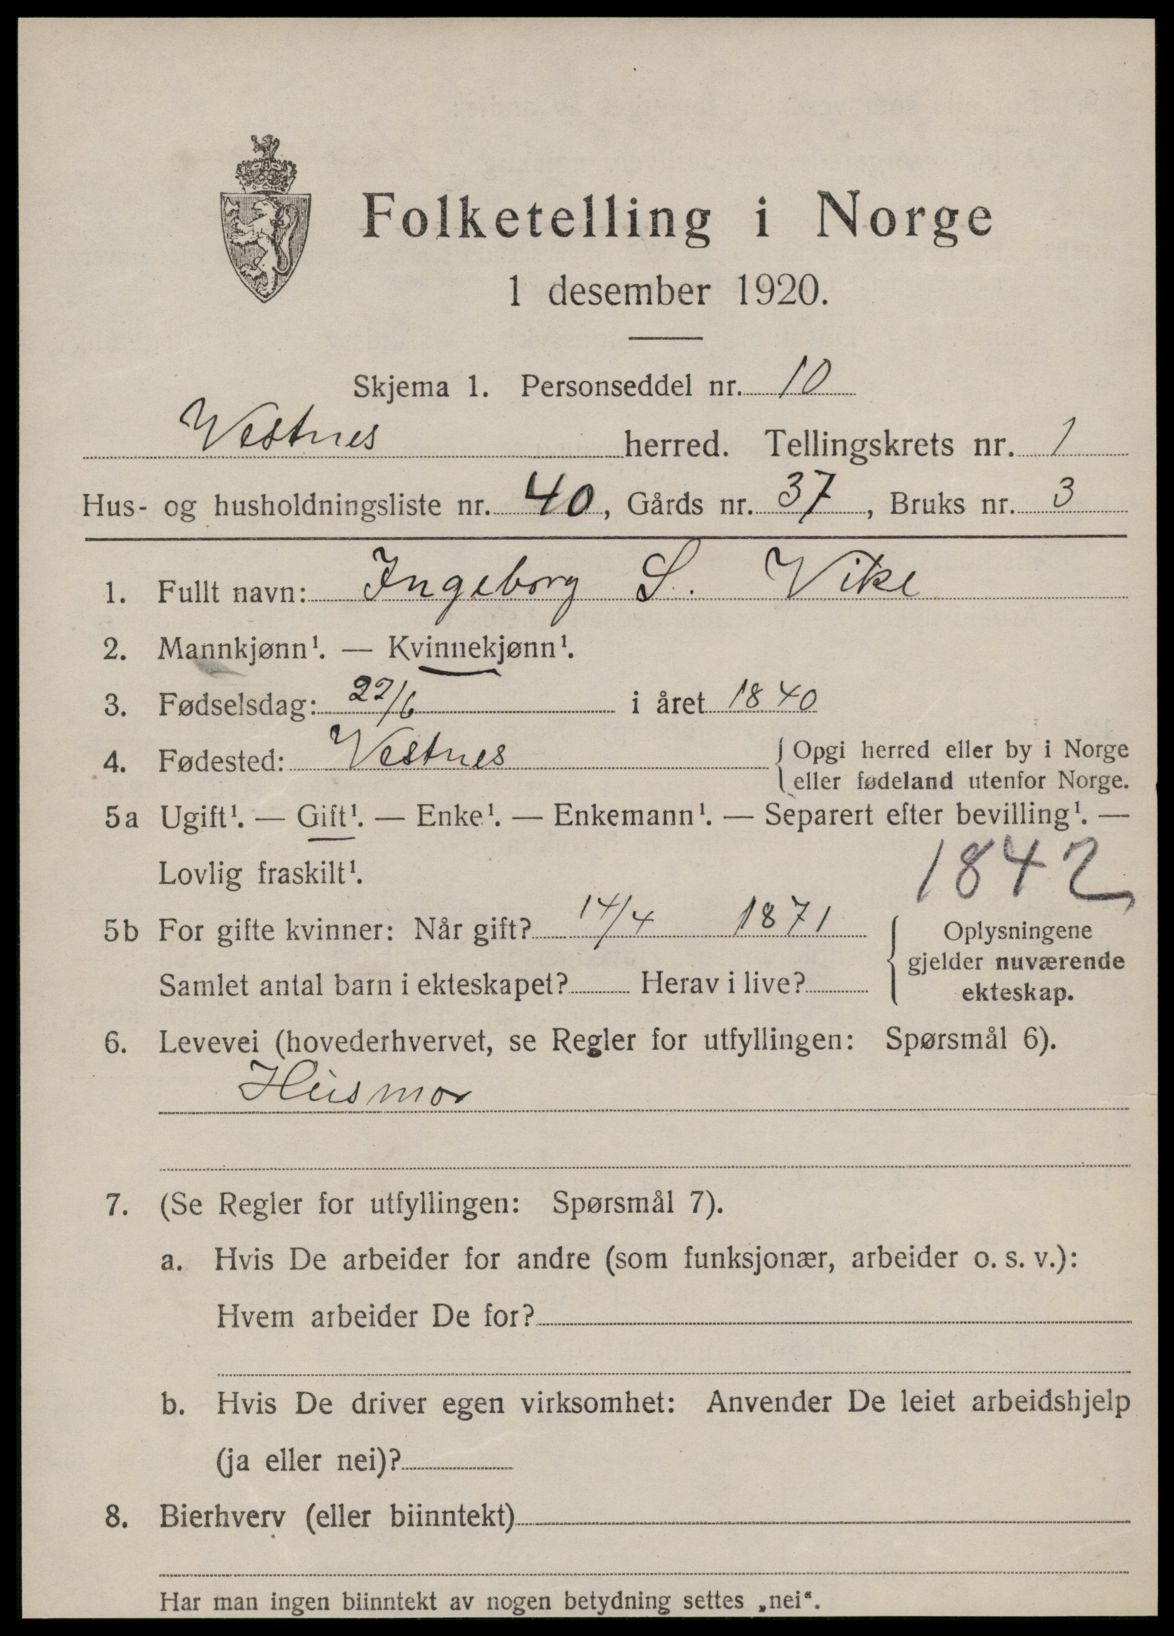 Folketelling i Norge
1 desember 1920.
Skjema 1. Personseddel nr. 10
Vestnes herred. Tellingskrets nr. 1
Hus- og husholdningsliste nr. 40, Gårds nr. 37, Bruks nr. 3
1. Fullt navn: Ingeborg S. Vike
2. Mannkjønn¹. — Kvinnekjønn¹.
3. Fødselsdag: 22/6 i året 1840
4. Fødested: Vestnes { Opgi herred eller by i Norge
eller fødeland utenfor Norge.
5a Ugift¹. — Gift¹. — Enke¹. — Enkemann¹. — Separert efter bevilling¹. —
Lovlig fraskilt¹. 1842
5b For gifte kvinner: Når gift? 14/4 1871 { Oplysningene
gjelder nuværende
Samlet antal barn i ekteskapet? Herav i live?
ekteskap.
6. Levevei (hovederhvervet, se Regler for utfyllingen: Spørsmål 6).
Husmor
7. (Se Regler for utfyllingen: Spørsmål 7).
a. Hvis De arbeider for andre (som funksjonær, arbeider o. s. v.):
Hvem arbeider De for?
b. Hvis De driver egen virksomhet: Anvender De leiet arbeidshjelp
(ja eller nei)?
8. Bierhverv (eller biinntekt)
Har man ingen biinntekt av nogen betydning settes „nei“.